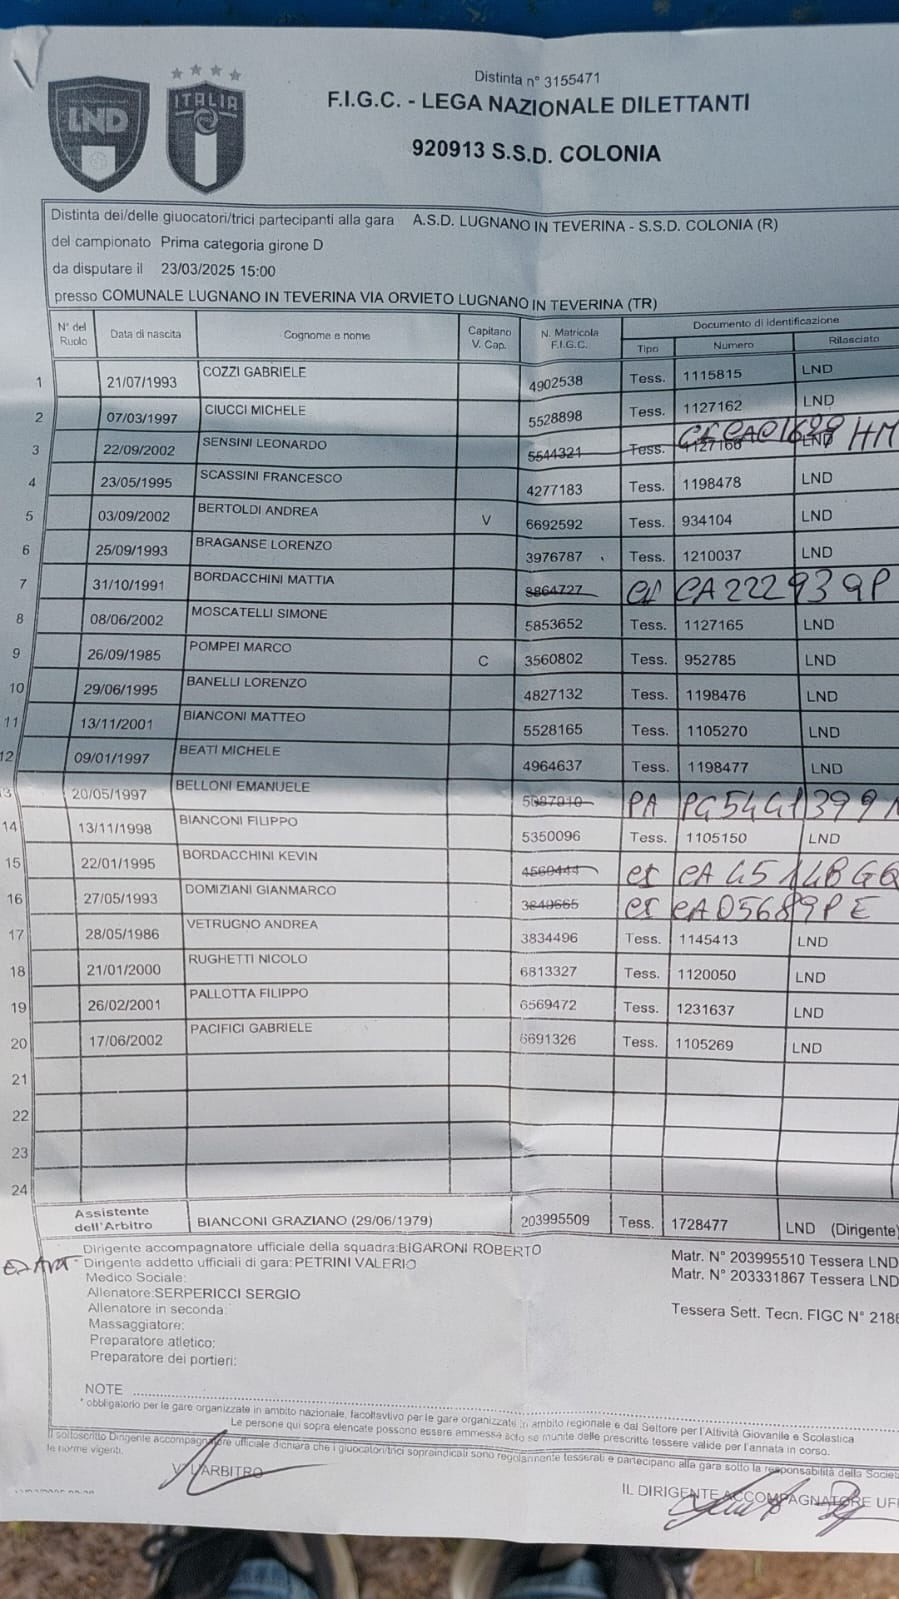 LND
ITALIA
Distinta n° 3155471
F.I.G.C. - LEGA NAZIONALE DILETTANTI
920913 S.S.D. COLONIA
Distinta dei/delle giuocatori/trici partecipanti alla gara A.S.D. LUGNANO IN TEVERINA - S.S.D. COLONIA (R)
del campionato Prima categoria girone D
da disputare il 23/03/2025 15:00
presso COMUNALE LUGNANO IN TEVERINA VIA ORVIETO LUGNANO IN TEVERINA (TR)
N° del Ruolo Data di nascita Cognome e nome Capitano V. Cap. N. Matricola F.I.G.C. Documento di identificazione
Tipo Numero Rilasciato
1 21/07/1993 COZZI GABRIELE 4902538 Tess. 1115815 LND
2 07/03/1997 CIUCCI MICHELE 5528898 Tess. 1127162 LND
3 22/09/2002 SENSINI LEONARDO 5544321 Tess. LND HM
4 23/05/1995 SCASSINI FRANCESCO 4277183 Tess. 1198478 LND
5 03/09/2002 BERTOLDI ANDREA V 6692592 Tess. 934104 LND
6 25/09/1993 BRAGANSE LORENZO 3976787 Tess. 1210037 LND
7 31/10/1991 BORDACCHINI MATTIA 3864727 CA22293
8 08/06/2002 MOSCATELLI SIMONE 5853652 Tess. 1127165 LND
9 26/09/1985 POMPEI MARCO C 3560802 Tess. 952785 LND
10 29/06/1995 BANELLI LORENZO 4827132 Tess. 1198476 LND
11 13/11/2001 BIANCONI MATTEO 5528165 Tess. 1105270 LND
12 09/01/1997 BEATI MICHELE 4964637 Tess. 1198477 LND
13 20/05/1997 BELLONI EMANUELE PA
14 13/11/1998 BIANCONI FILIPPO 5350096 Tess. 1105150 LND
15 22/01/1995 BORDACCHINI KEVIN
16 27/05/1993 DOMIZIANI GIANMARCO CA05689PE
17 28/05/1986 VETRUGNO ANDREA 3834496 Tess. 1145413 LND
18 21/01/2000 RUGHETTI NICOLO 6813327 Tess. 1120050 LND
19 26/02/2001 PALLOTTA FILIPPO 6569472 Tess. 1231637 LND
20 17/06/2002 PACIFICI GABRIELE 6691326 Tess. 1105269 LND
21
22
23
24
Assistente dell'Arbitro BIANCONI GRAZIANO (29/06/1979) 203995509 Tess. 1728477 LND (Dirigente)
Dirigente accompagnatore ufficiale della squadra:BIGARONI ROBERTO Matr. N° 203995510 Tessera LND
Dirigente addetto ufficiali di gara:PETRINI VALERIO Matr. N° 203331867 Tessera LND
Medico Sociale:
Allenatore:SERPERICCI SERGIO Tessera Sett. Tecn. FIGC N° 218
Allenatore in seconda:
Massaggiatore:
Preparatore atletico:
Preparatore dei portieri:
NOTE
* obbligatorio per le gare organizzate in ambito nazionale, facoltavtivo per le gare organizzate in ambito regionale e dal Settore per l'Attività Giovanile e Scolastica
Le persone qui sopra elencate possono essere ammesse al se munite delle prescritte tessere valide per l'annata in corso.
Il sottoscritto Dirigente accompagnatore ufficiale dichiara che i giuocatori/trici sopraindicati sono regolarmente tesserati e partecipano alla gara sotto la responsabilità della Societ
le norme vigenti.
L'ARBITRO
IL DIRIGENTE ACCOMPAGNATORE UF